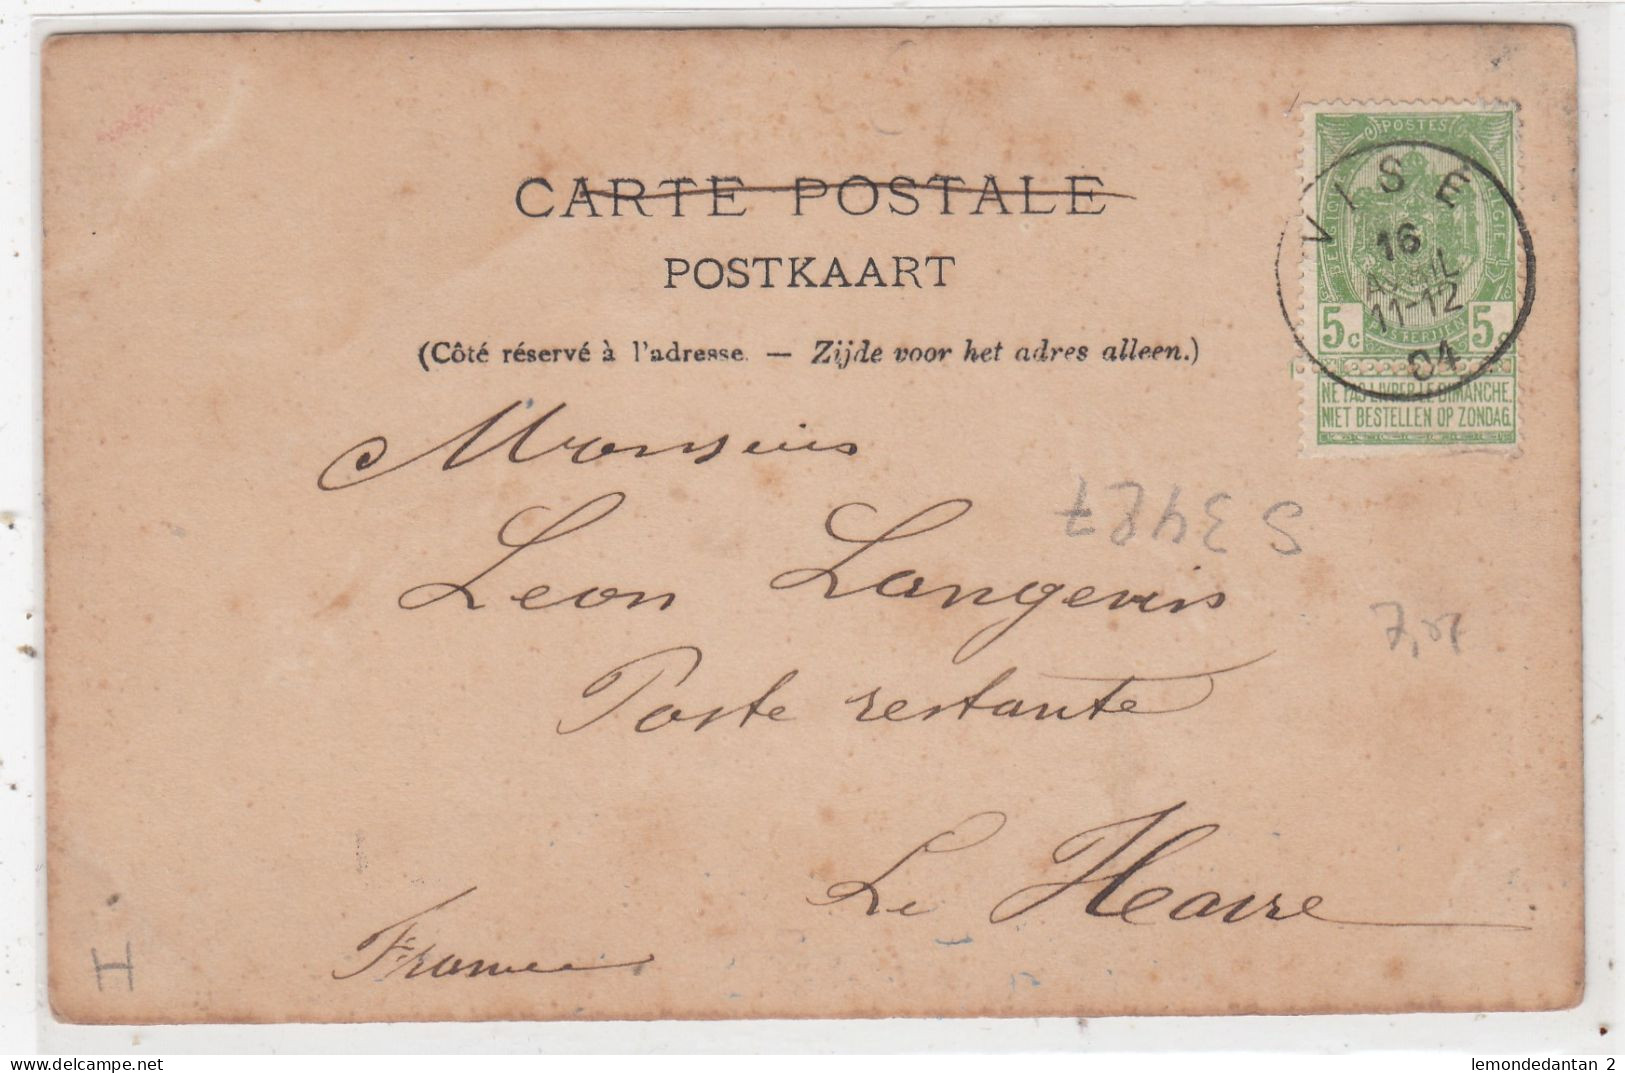 CARTE POSTALE
POSTKAART
(Côté réservé à l'adresse. — Zijde voor het adres alleen.)
POSTES
BELGIQUE BELGIE
5c 5c
NE PAS LIVRER LE DIMANCHE.
NIET BESTELLEN OP ZONDAG.
VISE
16
AVRIL
11-12
04
Monsieur
Leon Langevin
S 3487
Poste restante
Le Havre
France
H
lemondedantan 2
delcampe.net